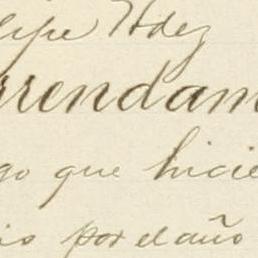 lipe Hdez
rrendam
go que hicie
is por el año